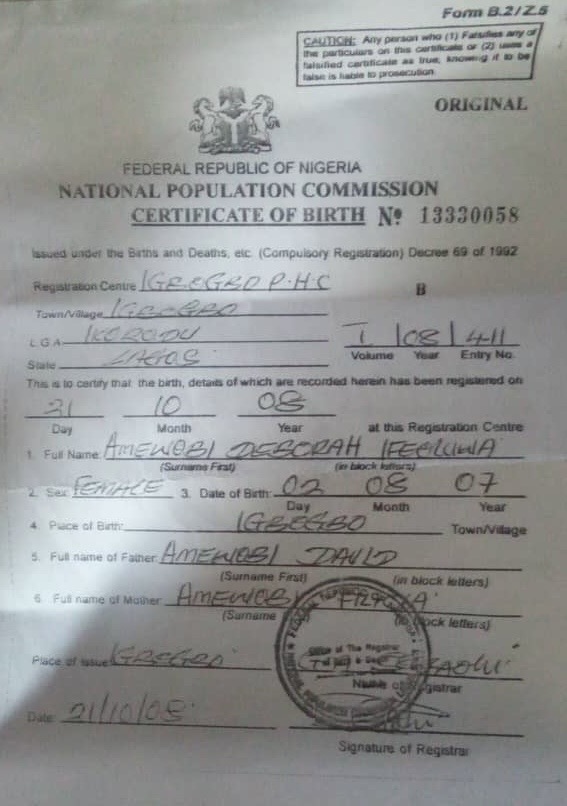 Form B.2/Z.5
CAUTION: Any person who (1) Falsifies any of
the particulars on this certificate or (2) uses a
falsified certificate as true, knowing it to be
false is liable to prosecution
ORIGINAL
FEDERAL REPUBLIC OF NIGERIA
NATIONAL POPULATION COMMISSION
CERTIFICATE OF BIRTH No 13330058
Issued under the Births and Deaths, etc. (Compulsory Registration) Decree 69 of 1992
Registration Centre IGBOGBO P.H.C B
Town/Village IGBOGBO
L G A IKORODU
I 08 411
Volume Year Entry No.
State LAGOS
This is to certify that the birth, details of which are recorded herein has been registered on
21 10 08
Day Month Year at this Registration Centre
1. Full Name: AMEWOBI DEBORAH IFEOLUWA
(Surname First) (in block letters)
2. Sex: FEMALE 3. Date of Birth: 02 08 07
Day Month Year
4. Place of Birth: IGBOGBO Town/Village
5. Full name of Father: AMEWOBI DAVID
(Surname First) (in block letters)
6. Full name of Mother: AMEWOBI
(Surname block letters)
Place of issue IGBOGBO
Office of The Registrar
Name of Registrar
Date: 21/10/08
Signature of Registrar